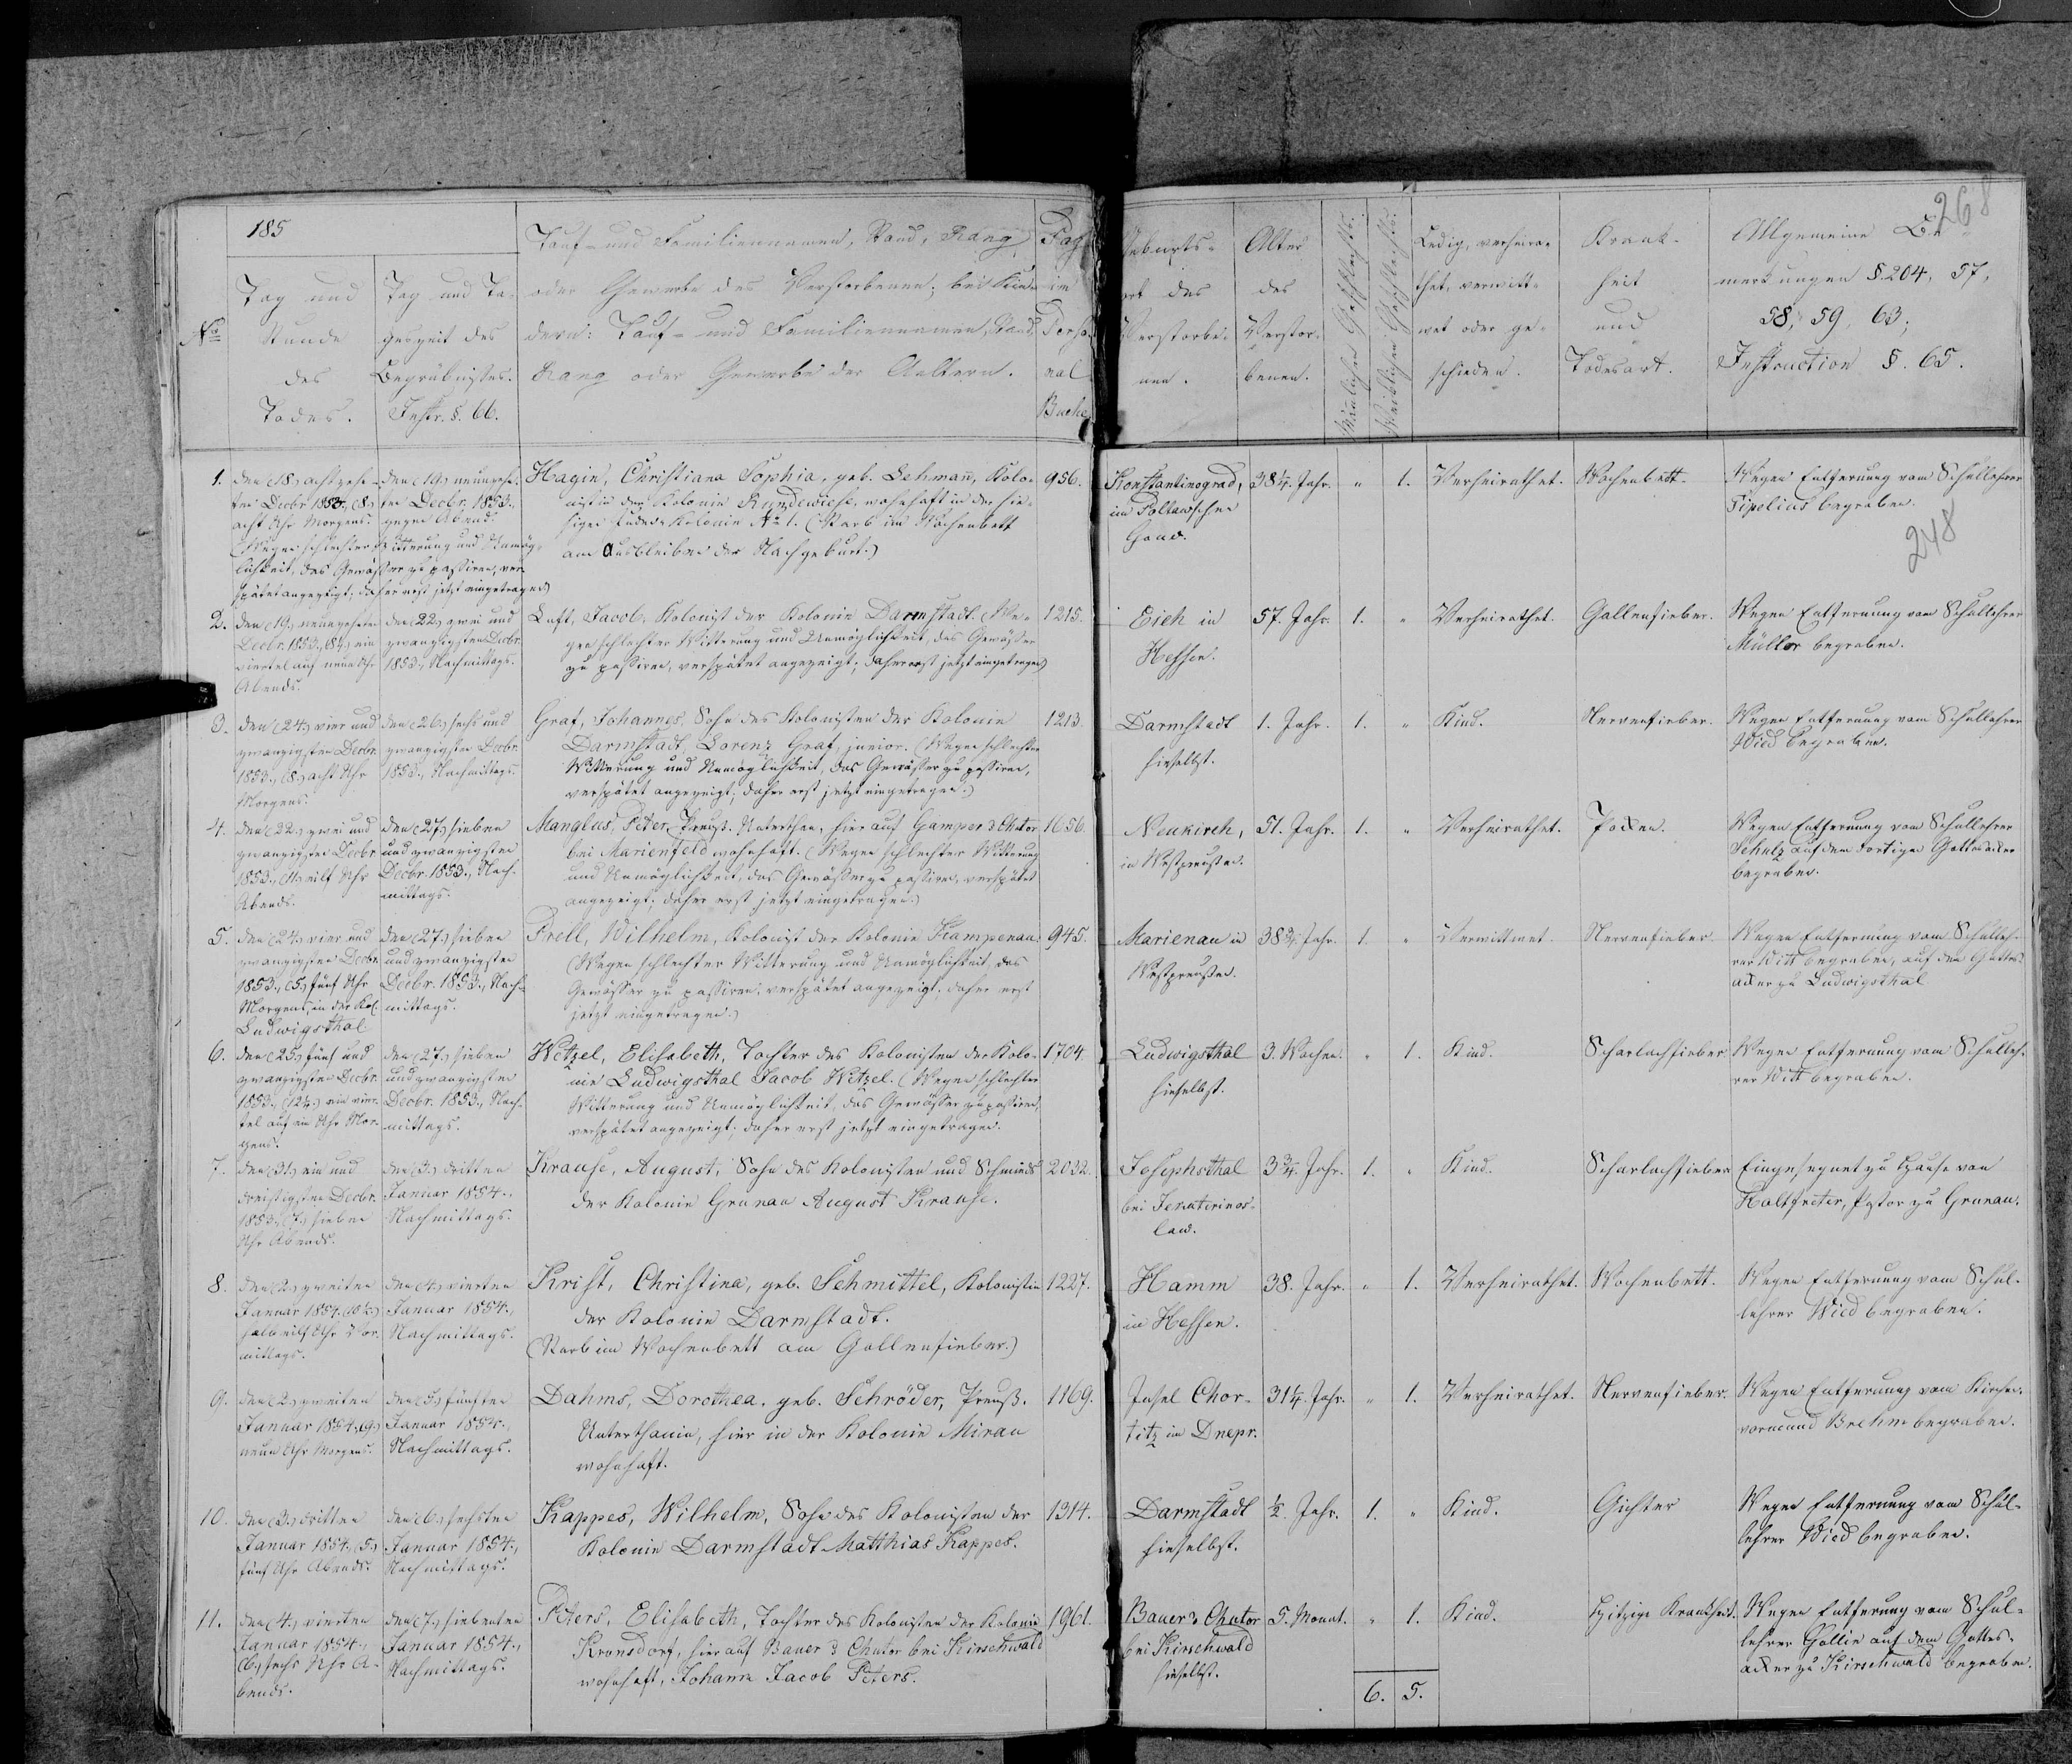 185
268
No
Tag und
Stunde
des
Todes.
Tag und Ta-
geszeit des
Begräbnißes.
Instr. §. 66.
Tauf- und Familiennamen, Stand, Rang
oder Gewerbe des Verstorbenen; bei Kin-
dern: Tauf- und Familiennamen, Stand,
Rang oder Gewerbe der Aeltern.
Pag
im
Perso-
nal
Buche
Geburts-
ort des
Verstorbe-
nen.
Alter
des
Verstor-
benen.
Männlichen Geschlechts.
Weiblichen Geschlechts.
Ledig, verheira-
thet, verwitt-
wet oder ge-
schieden.
Krank-
heit
und
Todesart.
Allgemeine Be-
merkungen §. 204, 57,
58, 59, 63;
Instruction §. 65.
1.
den (18.) achtzehn-
ten Decbr. 1853., (8.)
acht Uhr Morgens.
(Wegen schlechter Witterung und Unmög-
lichkeit, das Gewässer zu passiren, ver-
spätet angezeigt; daher erst jetzt eingetragen.)
den (19.) neunzehn-
ten Decbr. 1853.,
gegen Abend.
Hagin, Christiana Sophia, geb. Lehmañ, Kolo-
nistin der Kolonie Rundewiese, wohnhaft in der hie-
sigen Kolonie No 1. (Starb im Wochenbett
am Ausbleiben der Nachgeburt.)
956.
Konstantinograd,
im Poltawschen
Gouv.
38¼. Jahr.
„
1.
Verheirathet.
Wochenbett.
Wegen Entfernung vom Schullehrer
Sipelius begraben.
248
2.
den (19.) neunzehnten
Decbr. 1853., (8¼.) ein
viertel auf neun Uhr
Abends.
den (22.) zwei und
zwanzigsten Decbr.
1853., Nachmittags.
Luft, Jacob, Kolonist der Kolonie Darmstadt. (We-
gen schlechter Witterung und Unmöglichkeit, das Gewässer
zu passiren, verspätet angezeigt; daher erst jetzt eingetragen.)
1215.
Eich in
Hessen.
57. Jahr.
1.
„
Verheirathet.
Gallenfieber.
Wegen Entfernung vom Schullehrer
Müller begraben.
3.
den (24.) vier und
zwanzigsten Decbr.
1853., (8.) acht Uhr
Morgens.
den (26.) sechs und
zwanzigsten Decbr.
1853., Nachmittags.
Graf, Johannes, Sohn des Kolonisten der Kolonie
Darmstadt, Lorenz Graf, junior. (Wegen schlechter
Witterung und Unmöglichkeit, das Gewässer zu passiren,
verspätet angezeigt; daher erst jetzt eingetragen.)
1213.
Darmstadt
hieselbst.
1. Jahr.
1.
„
Kind.
Nervenfieber.
Wegen Entfernung vom Schullehrer
Wied begraben.
4.
den (22.) zwei und
zwanzigsten Decbr.
1853., (11.) eilf Uhr
Abends.
den (27.) sieben
und zwanzigsten
Decbr. 1853., Nach-
mittags.
Manglus, Peter, Preuß. Unterthan, hier auf Gamper's Chutor
bei Marienfeld wohnhaft. (Wegen schlechter Witterung
und Unmöglichkeit, das Gewässer zu passiren, verspätet
angezeigt; daher erst jetzt eingetragen.)
1656.
Neukirch,
in Westpreußen.
51. Jahr.
1.
„
Verheirathet.
Pocken.
Wegen Entfernung vom Schullehrer
Schulz auf dem dortigen Gottesacker
begraben.
5.
den (24.) vier und
zwanzigsten Decbr.
1853., (5.) fünf Uhr
Morgens, in der Kol.
Ludwigsthal
den (27.) sieben
und zwanzigsten
Decbr. 1853., Nach-
mittags.
Prell, Wilhelm, Kolonist der Kolonie Kampenau.
(Wegen schlechter Witterung und Unmöglichkeit, das
Gewässer zu passiren, verspätet angezeigt; daher erst
jetzt eingetragen.)
945.
Marienau in
Westpreußen.
38¾. Jahr.
1.
„
Verwittwet.
Nervenfieber.
Wegen Entfernung vom Schulleh-
rer Witt begraben, auf dem Gottes-
acker zu Ludwigsthal
6.
den (25.) fünf und
zwanzigsten Decbr.
1853., (12¼.) ein vier-
tel auf ein Uhr Mor-
gens.
den (27.) sieben
und zwanzigsten
Decbr. 1853., Nach-
mittags.
Wetzel, Elisabeth, Tochter des Kolonisten der Kolo-
nie Ludwigsthal Jacob Wetzel. (Wegen schlechter
Witterung und Unmöglichkeit, das Gewässer zu passiren,
verspätet angezeigt; daher erst jetzt eingetragen.
1704.
Ludwigsthal
hieselbst.
3. Wochen.
„
1.
Kind.
Scharlachfieber
Wegen Entfernung vom Schulleh-
rer Witt begraben.
7.
den (31.) ein und
dreißigsten Decbr.
1853., (7.) sieben
Uhr Abends.
den (3.) dritten
Januar 1854.,
Nachmittags.
Krause, August, Sohn des Kolonisten und Schmieds
der Kolonie Grunau August Krause.
2032.
Josephsthal
bei Jekaterinos-
law.
3¾. Jahr.
1.
„
Kind.
Scharlachfieber
Eingesegnet zu Hause von
Holtfreter, Pastor zu Grunau.
8.
den (2.) zweiten
Januar 1854., (10½.)
halb eilf Uhr Vor-
mittags.
den (4.) vierten
Januar 1854.,
Nachmittags.
Krist, Christina, geb. Schmittel, Kolonistin
der Kolonie Darmstadt.
(Starb im Wochenbett am Gallenfieber.)
1227.
Hamm
in Hessen.
38. Jahr.
„
1.
Verheirathet.
Wochenbett.
Wegen Entfernung vom Schul-
lehrer Wied begraben.
9.
den (2.) zweiten
Januar 1854., (9.)
neun Uhr Morgens.
den (5.) fünften
Januar 1854.,
Nachmittags.
Dahms, Dorothea, geb. Schröder, Preuß.
Unterthanin, hier in der Kolonie Mirau
wohnhaft.
1169.
Insel Chor-
titz im Dnepr.
31¼. Jahr.
„
1.
Verheirathet.
Nervenfieber.
Wegen Entfernung vom Kirchen-
vormund Brehm begraben.
10.
den (3.) dritten
Januar 1854., (5.)
fünf Uhr Abends.
den (6.) sechsten
Januar 1854.,
Nachmittags.
Kappes, Wilhelm, Sohn des Kolonisten der
Kolonie Darmstadt Matthias Kappes.
1314.
Darmstadt
hieselbst.
½. Jahr.
1.
„
Kind.
Gichter
Wegen Entfernung vom Schul-
lehrer Wied begraben.
11.
den (4.) vierten
Januar 1854.,
(6.) sechs Uhr A-
bends.
den (7.) siebenten
Januar 1854.,
Nachmittags.
Peters, Elisabeth, Tochter des Kolonisten der Kolonie
Kronsdorf, hier auf Bauer's Chutor bei Kirschwald
wohnhaft, Johann Jacob Peters.
1961.
Bauer's Chutor
bei Kirschwald
hieselbst.
5. Monat.
„
1.
Kind.
Hitzige Krankheit.
Wegen Entfernung vom Schul-
lehrer Gollin auf dem Gottes-
acker zu Kirschwald begraben.
6.
5.